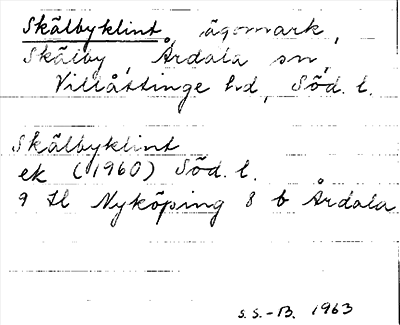 Skälbyklint, ägomark,
Skälby, Årdala sn,
Villåttinge hd, Söd. l.
Skälbyklint
ek (1960) Söd. l.
9 H Nyköping 8 b Årdala
S.S.-B. 1963